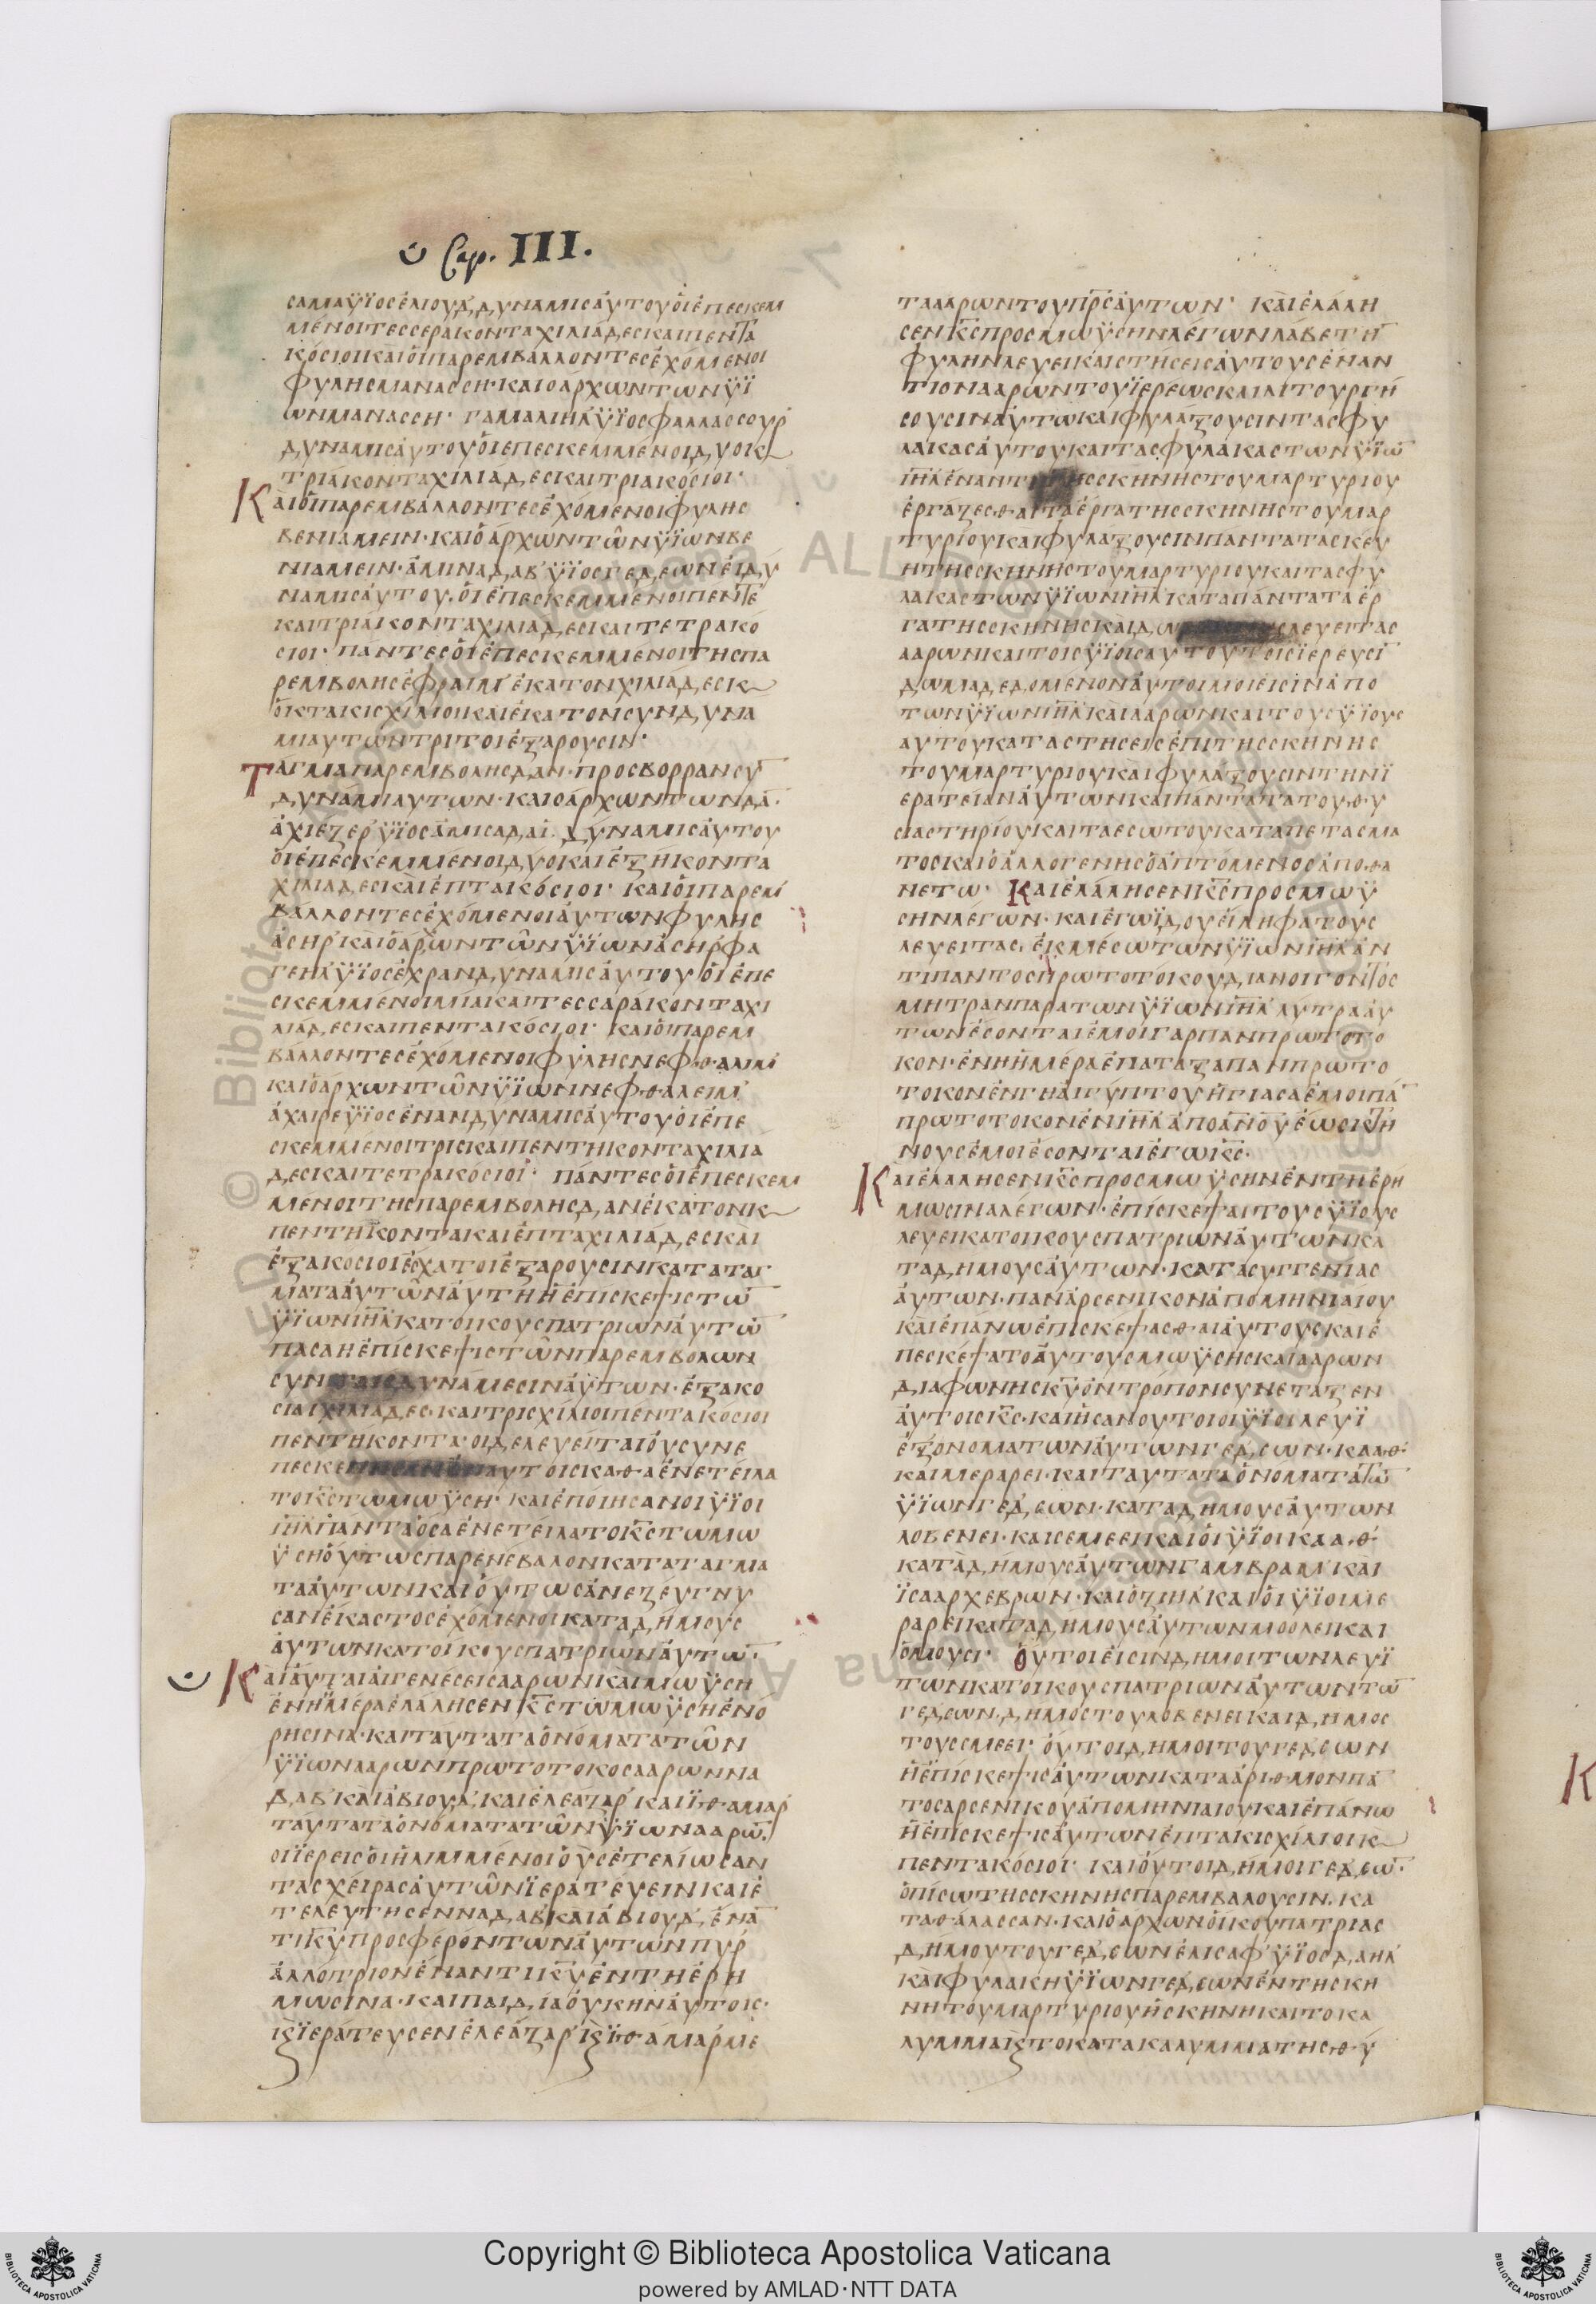 Cap. III.
ϲαμαϋϊοϲἐλιουδ᾽δυναμιϲἀυτουὁιἐπεϲκεμ
μένοιτεϲϲερακονταχιλιάδεϲκαιπεντα
κόϲιοικαιὁιπαρεμβαλλοντεϲἐχόμενοι
φυληϲμαναϲϲη·καιοαρχωντωνϋϊ
ωνμαναϲϲη· γαμαλιηλϋϊοϲφαλλαϲϲουρ
δυναμιϲἀυτουὁιἐπεϲκεμμένοιδυοκ
τριάκονταχιλιάδεϲκαιτριακόϲιοι·
Καιὁιπαρεμβάλλοντεϲἐχόμενοιφυληϲ
βενιαμειν·καιὁάρχωντῶνϋϊωνβε
νιαμειν·ἀμιναδαβ᾽ϋϊοϲγεδεωνἐιδυ
ναμιϲἀυτου·ὁιἐπεϲκεμμένοιπεντε
καιτριάκονταχιλιαδεϲκαιτετρακό
ϲιοι· πάντεϲὁιἐπεϲκεμμενοιτηϲπα
ρεμβοληϲἐφραιμ᾽ἑκατονχιλιαδεϲκ
ὀκτακιϲχίλιοικαιἑκατονϲυνδυνα
μιαυτῶντριτοιἐξαρουϲιν·
Ταγμαπαρεμβοληϲδαν·προϲβορρανϲυ̅
δυνάμιαυτων·καιοάρχωντωνδα̅·
ἀχιεζερ᾽ϋϊοϲἀμιϲαδαι·δύναμιϲἀυτου
ὁιἐπεϲκεμμένοιδυοκαιἐξήκοντα
χιλιαδεϲκαιἐπτακόϲιοι· καιὁιπαρεμ
βάλλοντεϲἐχόμενοιἀυτωνφυληϲ
ἀϲηρ᾽καιὁάρχωντῶνϋϊωνἀϲήρφα
γεηλϋϊοϲἐχρανδυναμιϲἀυτουὁιἐπε
ϲκεμμένοιμίακαιτεϲϲαράκονταχι
λιάδεϲκαιπεντακόϲιοι· καιὁιπαρεμ
βάλλοντεϲἐχόμενοιφυληϲνεφθαλιμ
καιὁάρχωντῶνϋϊωννεφθαλειμ᾽
ἀχαιρεϋϊοϲἐνανδυναμιϲἀυτουὁιἐπε
ϲκεμμενοιτριϲκαιπεντηκονταχιλιά
δεϲκαιτετρακόϲιοι· πάντεϲὁιἐπεϲκεμ
μενοιτηϲπαρεμβοληϲδανἑκατονκ
πεντηκοντακαιἑπταχιλιάδεϲκαι
ἑξακοϲιοιἐϲχατοιἐξαρουϲινκαταταγ
ματαἀυτῶνἀυτηἡἐπιϲκεψιϲτω̅
ϋϊωνιη̅λκατοικουϲπατριωνἀυτω̅
παϲαἡἐπίϲκεψιϲτῶνπαρεμβολων
ϲυνταιϲδυναμεϲινἀυτων·ἑξακο
ϲιαιχιλιάδεϲ·καιτριϲχίλιοιπεντακόϲιοι
πεντήκονταοιδελευείταιὀυϲυνε
πεϲκεπηϲανἐναυτοιϲκαθαἐνετείλα
τοκ̅ϲτωμωϋϲη· καιἐπόιηϲανοιϋϊοι
ιη̅λπάνταὁϲαἐνετείλατοκ̅ϲτωμω
ϋϲηὁυτωϲπαρενέβαλονκαταταγμα
τααυτωνκαιὁυτωϲἀνεζευγνυ
ϲανἑκαϲτοϲἐχόμενοικαταδημουϲ
ἀυτωνκατοίκουϲπατριωνἀυτω̅·
Καιἀυταιἁιγενέϲειϲααρωνκαιμωϋϲη
ἐνἡμέραἐλάληϲενκ̅ϲτωμωϋϲηἐνό
ρηϲινα·καιταυταταὀνόματατῶν
ϋϊωνααρωνπρωτοτοκοϲααρωννα
δαβ᾽καιἀβιουδ᾽καιἐλεάζαρ᾽καιϊθαμαρ
ταυταταὀνόματατῶνϋϊωνααρω̅·
οιϊερειϲὁιἠλιμμένοιὁυϲἐτελίωϲαν
ταϲχείραϲἀυτῶνϊερατέυεινκαιἐ
τελευτηϲενναδαβκαιἀβιουδ᾽ἐνα̅
τικ̅υπροϲφερόντωνἀυτωνπυρ
ἀλλότριονἐναντικ̅υἐντηἐρη
μωϲινα·καιπαιδίαὀυκηνἀυτοιϲ·
ϗϊεράτευϲενἐλεάζαρϗϊθάμαρμε
τααρωντουπρ̅ϲἀυτων· καιἐλάλη
ϲενκ̅ϲπροϲμωϋϲηνλέγωνλάβετη̅
φυληνλευεικαιϲτηϲειϲἀυτουϲἐναν
τιονααρωντουϊερεωϲκαιλιτουργή
ϲουϲιναυτωκαιφυλάξουϲινταϲφυ
λακαϲἀυτουκαιταϲφυλάκαϲτωνϋϊω̅
ιη̅λἐναντιτηϲϲκηνηϲτουμαρτυριου
ἐργάζεϲθαιταἐργατηϲϲκηνηϲτουμαρ
τυρίουκαιφυλάξουϲινπανταταϲκευ
ητηϲϲκηνηϲτουμαρτυριουκαιταϲφυ
λακαϲτωνϋϊωνιη̅λκαταπάνταταἐρ
γατηϲϲκηνηϲκαιδωϲλευειταϲ
ααρωνκαιτοιϲϋϊοιϲαυτουτοιϲϊερευϲι̅
δωμαδεδομενονἀυτοιμοιειϲιναπο
τωνϋϊωνιη̅λκαιααρωνκαιτουϲϋϊουϲ
αυτουκαταϲτηϲειϲἐπιτηϲϲκηνηϲ
τουμαρτυριουκαιφυλαξουϲιντηνϊ
ερατείανἀυτωνκαιπάνταταтουθυ
ϲιαϲτηρίουκαιταεϲωτουκαταπεταϲμα
τοϲκαιὁἀλλογενηϲὁἁπτόμενοϲἀποθα
νετω· Καιἐλάληϲενκ̅ϲπροϲμωϋ
ϲηνλέγων·καιἐγωϊδουεἴληφατουϲ
λευειταϲ·ἐκμέϲωτωνϋϊωνιη̅λἀν
τιπαντοϲπρωτοτόκουδιανοιγοντοϲ
μητρανπαρατωνϋϊωνιη̅λλυτραἀυ
τωνἐϲονταιἐμοιγαρπανπρωτοτο
κον·ἐνηἡμέραἐπάταξαπανπρωτο
τοκονἐνγηἀιγύπτουἡγιαϲαἐμοιπα̅
πρωτοτοκονἐνιη̅λἀποα̅νουἑωϲκτη
νουϲἐμοιἐϲονταιἐγωκ̅ϲ·
Καιἐλαληϲενκ̅ϲπροϲμωϋϲηνἐντηἐρή
μωϲιναλέγων·ἐπίϲκεψαιτουϲϋϊουϲ
λευεικατοικουϲπατριωνἀυτωνκα
ταδημουϲἀυτων·καταϲυγγενίαϲ
ἀυτων·πανἀρϲενικονἀπομηνιαιου
καιἐπανωἐπιϲκέψαϲθαιἀυτουϲκαιἐ
πεϲκέψατοἀυτουϲμωϋϲηϲκαιααρων
διαφωνηϲκ̅υὁντρόπονϲυνεταξεν
ἀυτοιϲκ̅ϲ·καιἡϲανουτοιοιϋϊοιλευϊ
ἐξονοματωνἀυτωνγεδϲων·κααθ·
καιμεραρει·καιταυταταὀνοματατω̅
ϋϊωνγεδϲων·καταδημουϲἀυτων
λοβενει·καιϲεμεεικαιὁιϋϊοικααθ᾽
καταδήμουϲἀυτωνγαμβραμ᾽και
ϊϲααρχεβρων·καιὀζιηλκαιὁιϋϊοιμε
ραρεικαταδημουϲἀυτωνμοολεικαι
ὁμουϲι· ὁυτοιἐιϲινδημοιτωνλευϊ
τωνκατοικουϲπατριωνἀυτωντω̅
γεδϲων·δημοϲτουλοβενεικαιδημοϲ
τουϲεμεει· ὁυτοιδημοιτουγεδϲων
ἡἐπίϲκεψιϲἀυτωνκατααριθμονπα̅
τοϲαρϲενικουἀπομηνιαιουκαιἐπάνω
ἡἐπίϲκεψιϲἀυτωνἑπτάκιϲχίλιοικ
πεντακόϲιοι· καιὁυτοιδήμοιγεδϲω̅·
ὀπίϲωτηϲϲκηνηϲπαρεμβαλουϲιν·κα
ταθάλαϲϲαν·καιὁἀρχωνὀικουπατριαϲ
δήμουτουγεδϲωνἐλιϲαφ᾽ϋϊοϲδαηλ
καιφυλακηϋϊωνγεδϲωνἐντηϲκη
νητουμαρτυριουἡϲκηνηκαιτοκα
λυμμαϗτοκατακαλυμματηϲθύ
Copyright © Biblioteca Apostolica Vaticana
powered by AMLAD·NTT DATA